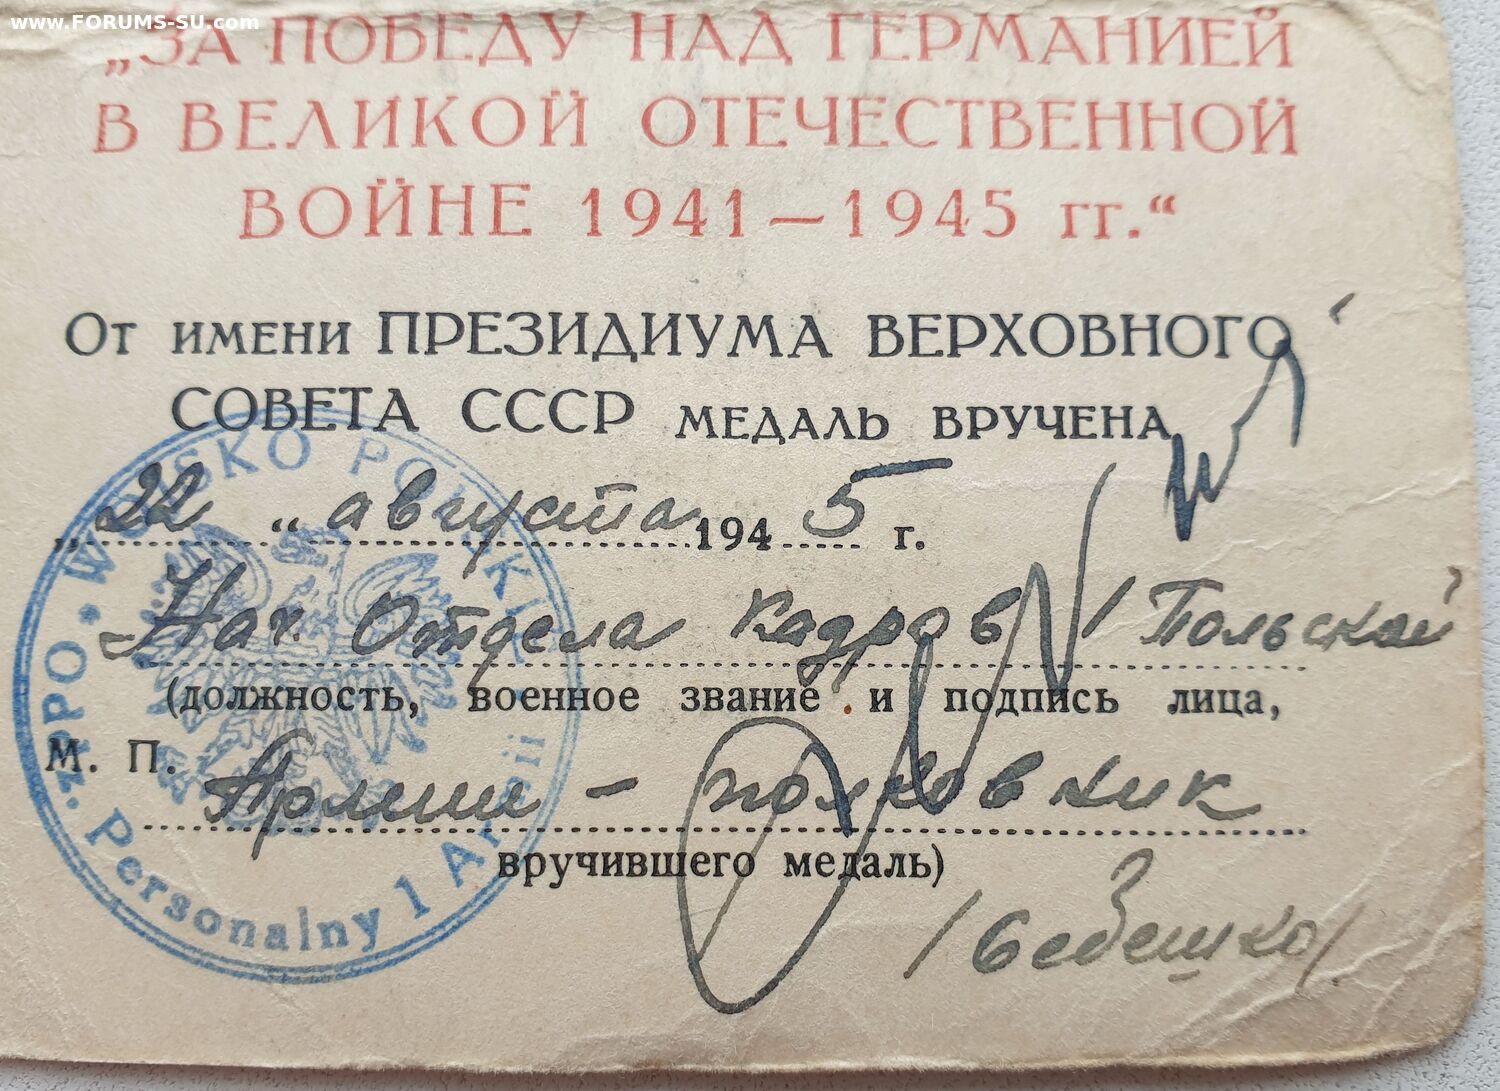 www.FORUMS-SU.com
„ЗА ПОБЕДУ НАД ГЕРМАНИЕЙ
В ВЕЛИКОЙ ОТЕЧЕСТВЕННОЙ
ВОЙНЕ 1941—1945 гг.“
От имени ПРЕЗИДИУМА ВЕРХОВНОГО
СОВЕТА СССР МЕДАЛЬ ВРУЧЕНА
„22„ августа 1945 г.
Нач. Отдела Кадров 1 Польской
(должность, военное звание и подпись лица,
М. П.
Армии - полковник
вручившего медаль)
WOJSKO POLSKIE
Personalny 1 Armii